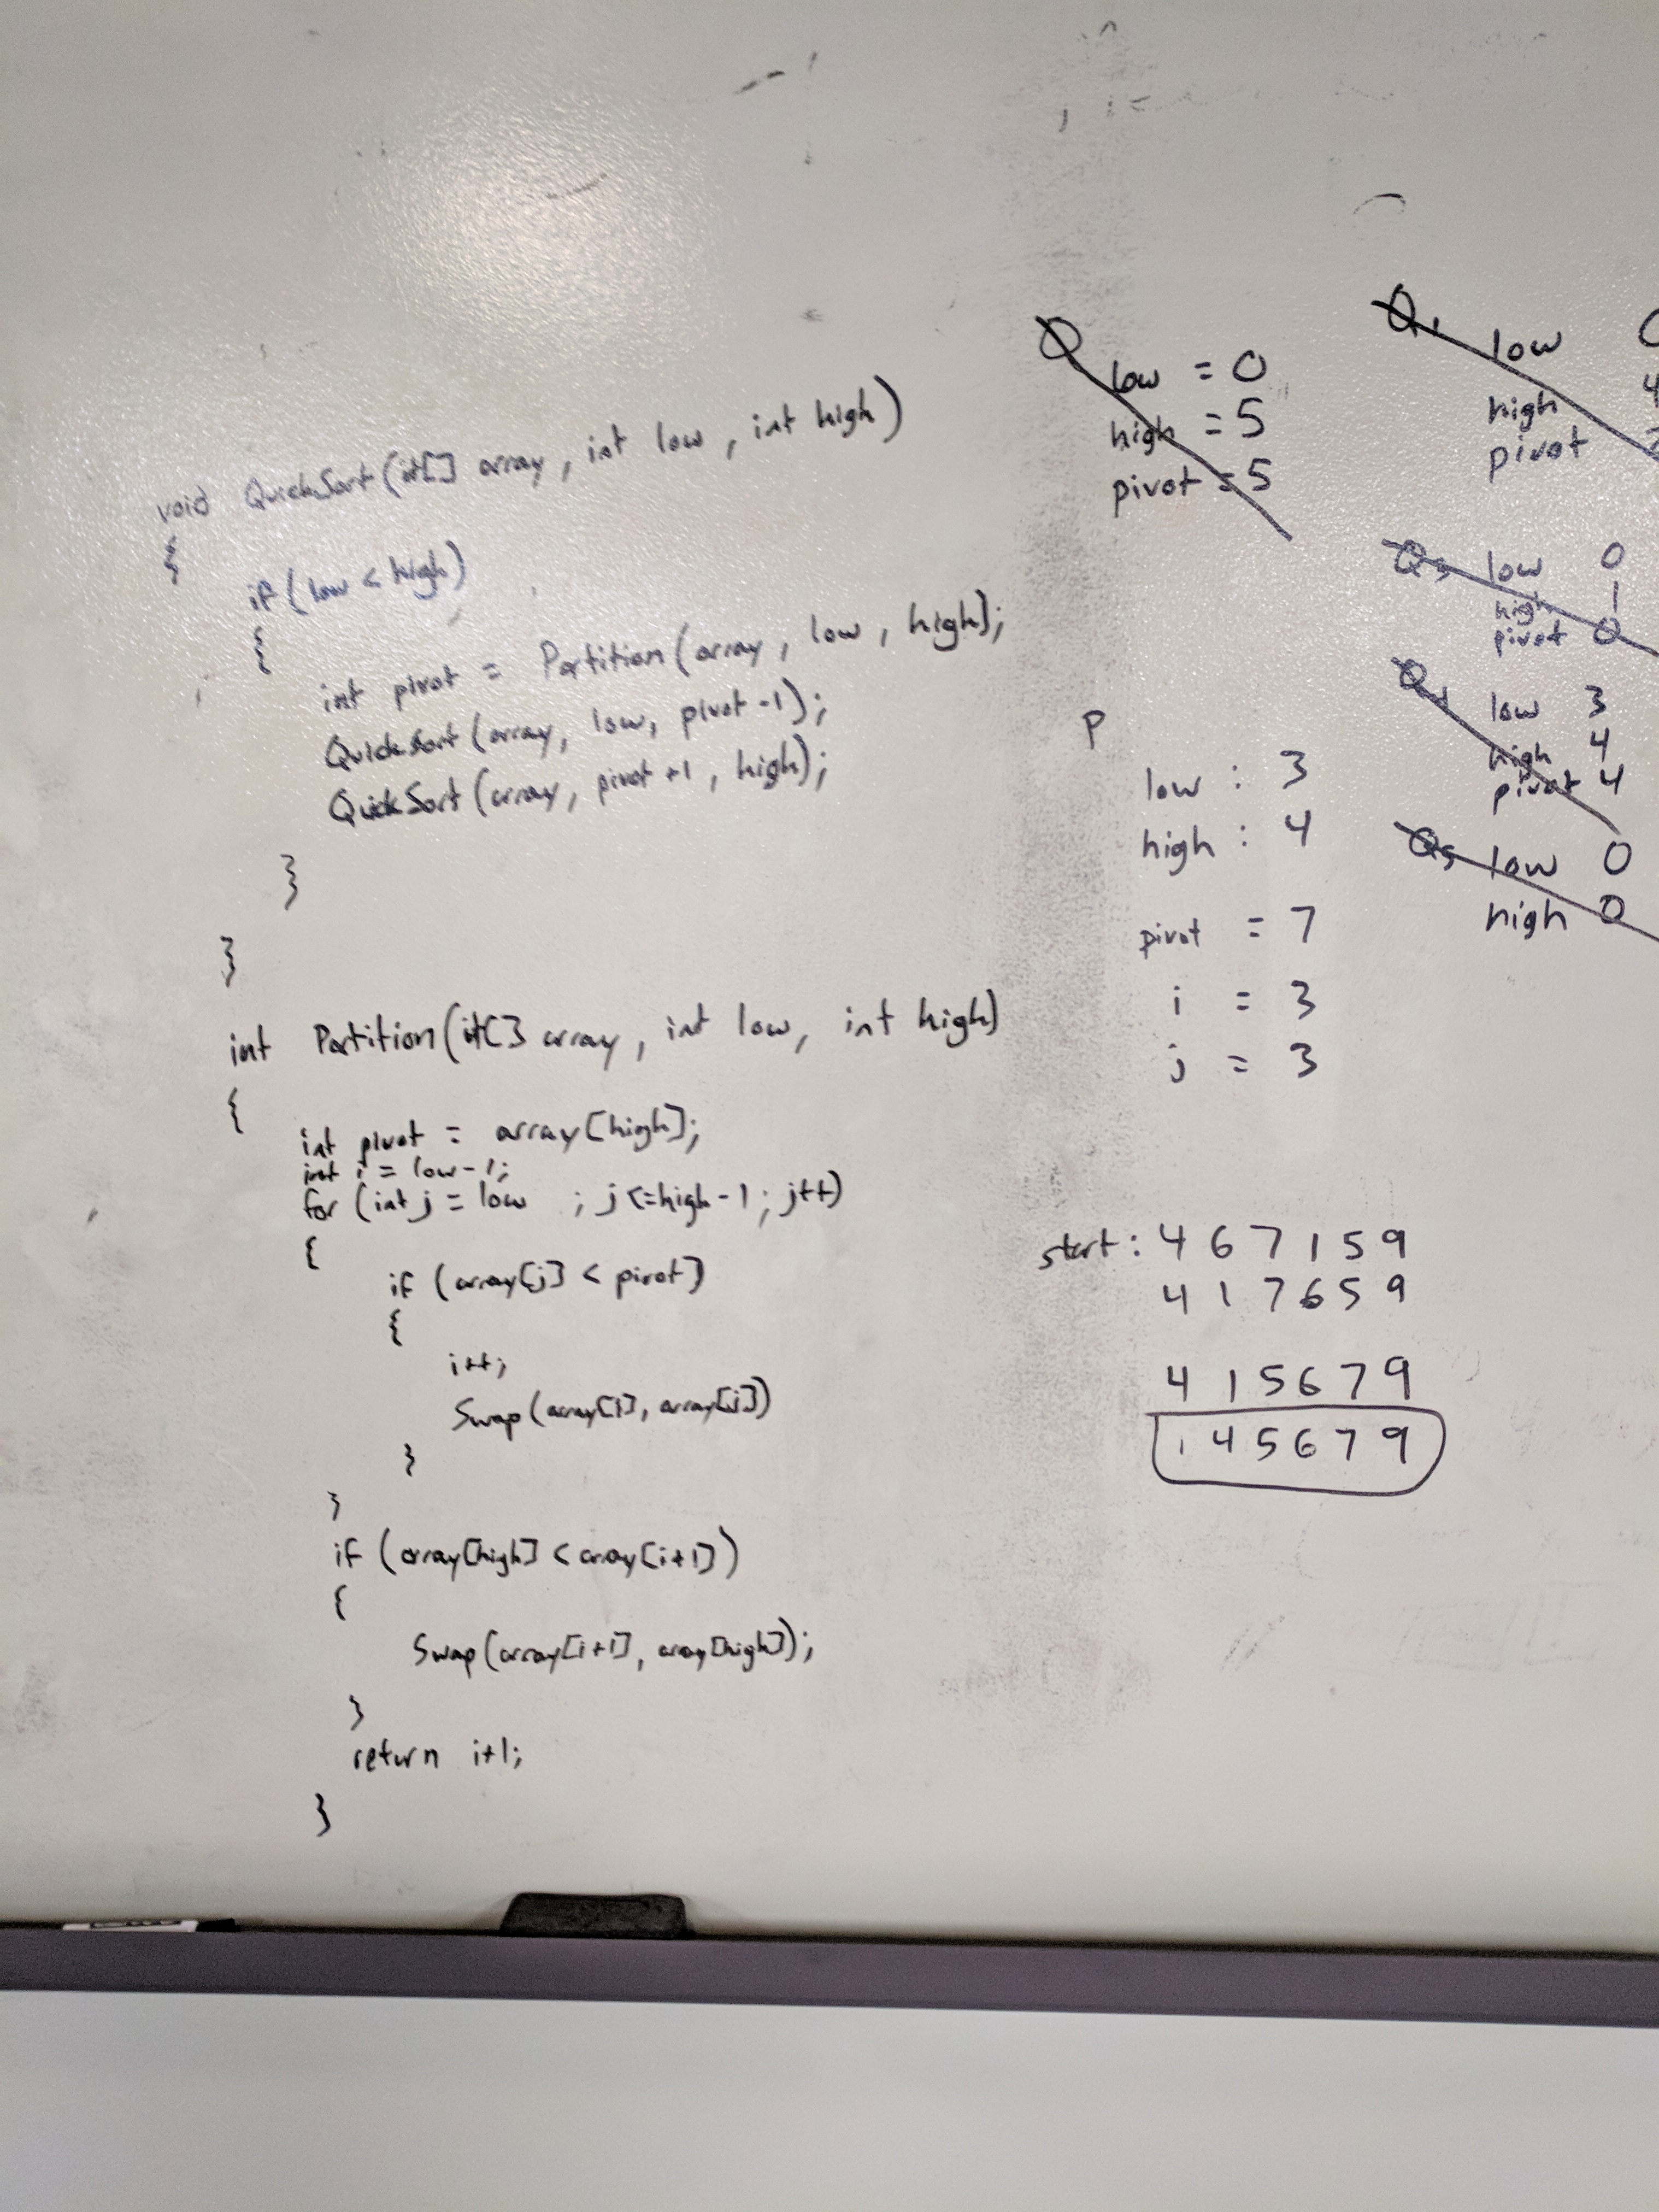 void QuickSort(int[] array, int low, int high)
{
if (low < high)
{
int pivot = Partition(array, low, high);
QuickSort(array, low, pivot-1);
QuickSort(array, pivot+1, high);
}
}
int Partition(int[] array, int low, int high)
{
int pivot = array[high];
int i = low-1;
for (int j = low ; j <= high-1; j++)
{
if (array[j] < pivot)
{
i++;
Swap(array[i], array[j])
}
}
if (array[high] < array[i+1])
{
Swap(array[i+1], array[high]);
}
return i+1;
}
Q
low = 0
high = 5
pivot = 5
P
low : 3
high : 4
pivot = 7
i = 3
j = 3
start: 4 6 7 1 5 9
4 1 7 6 5 9
4 1 5 6 7 9
1 4 5 6 7 9
Q1 low
high 4
pivot
Q3 low 0
high 1
pivot 0
low 3
high 4
pivot 4
Q5 low 0
high 0